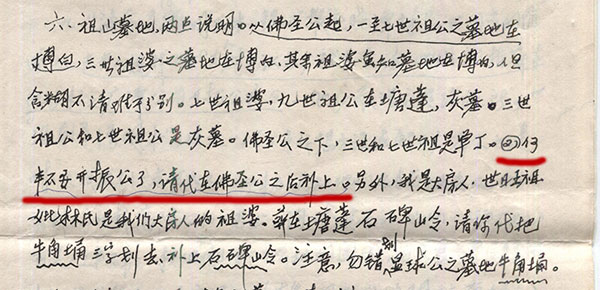 六、祖山墓地，两点说明。从佛圣公起，一至七世祖公之墓地在
博白，三世祖婆之墓地在博白，其余祖婆虽知墓地在博白，但
含糊不清难于分别。七世祖婆，九世祖公在塘蓬，灰墓。三世
祖公和七世祖公是灰墓。佛圣公之下，三世和七世祖是单丁。②
开振公了，请代在佛圣公之后补上。另外，我是大房人，世祖
妣林氏是我们大房人的祖婆。葬在塘蓬石碑山岭，请你代把
牛角埇三字划去，补上石碑山岭。注意，勿错划显球公之墓地牛角埇。